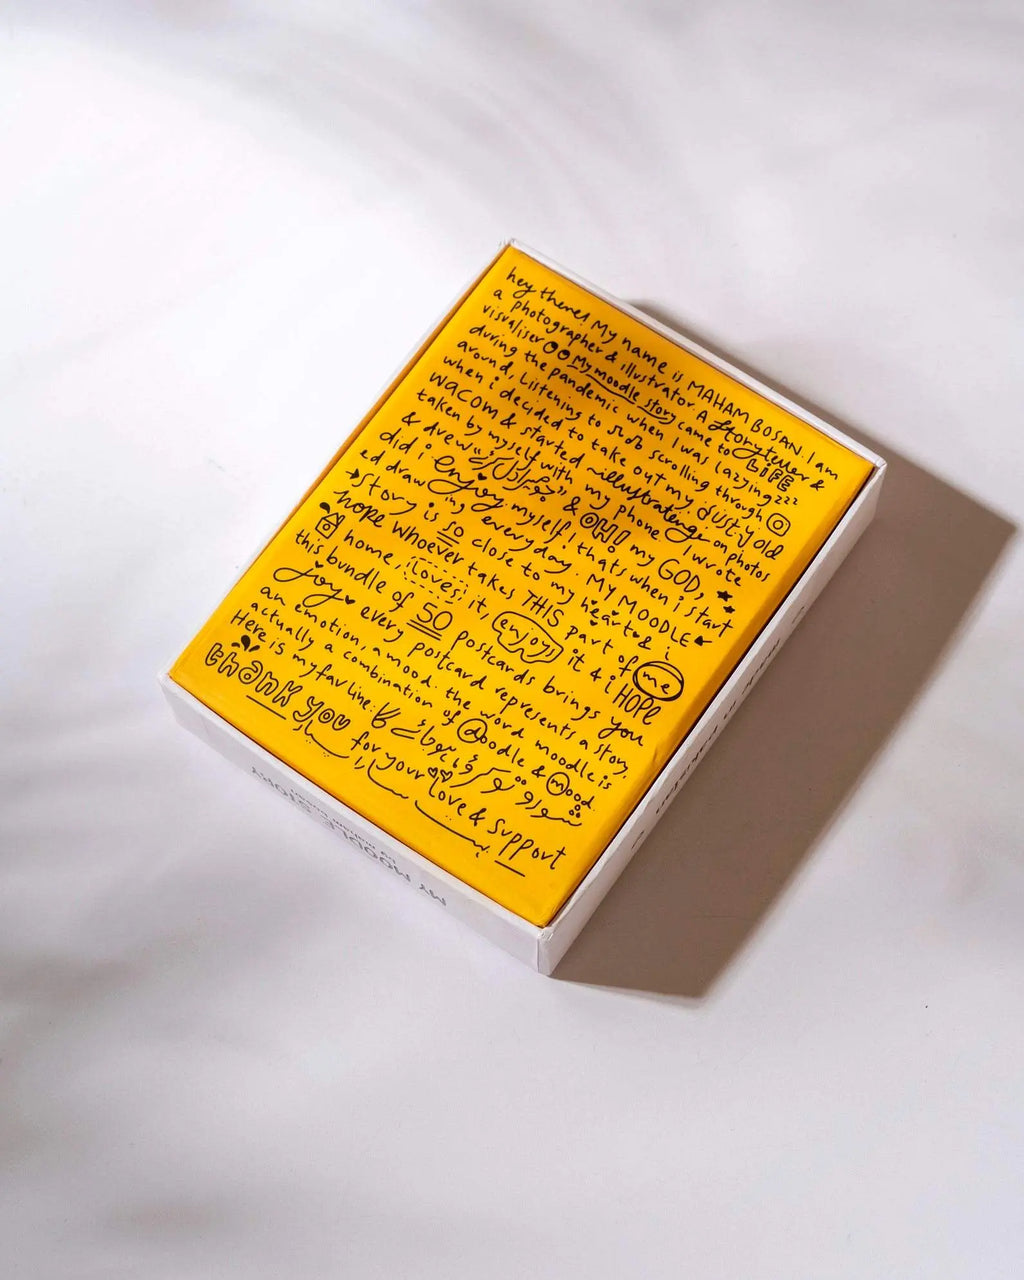 hey there! My name is MAHAM BOSAN. I am
a photographer & illustrator. A storyteller &
visualiser My moodle story came to LIFE
during the pandemic when I was lazying zzz
around. Listening to scrolling through
when i decided to take out my dust-y old
WACOM & started ~illustrating on photos
taken by myself with my phone. I wrote
& drew & OH! my GOD,
did i enjoy myself! thats when i start
ed drawing everyday. My MOODLE
story is so close to my heart & i
hope whoever takes THIS part of me
home, loves it, enjoys it & i HOPE
this bundle of 50 postcards brings you
joy every postcard represents a story,
an emotion, a mood. the word moodle is
actually a combination of doodle & mood.
Here is my fav line:
thank you for your love & support
MY MOODLE STORY
by maham bosan